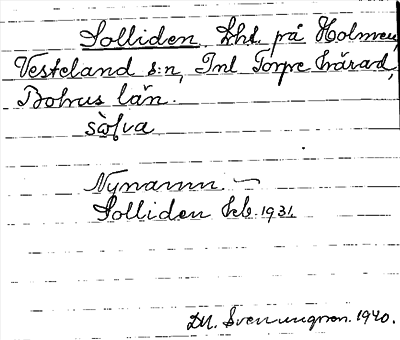 Solliden. Lht. på Holmen,
Vesteland s:n, Inl Torpe härad,
Bohus län.
sòlva
Nynamn. —
Solliden kb. 1931.
D.H. Svenungsson. 1940.